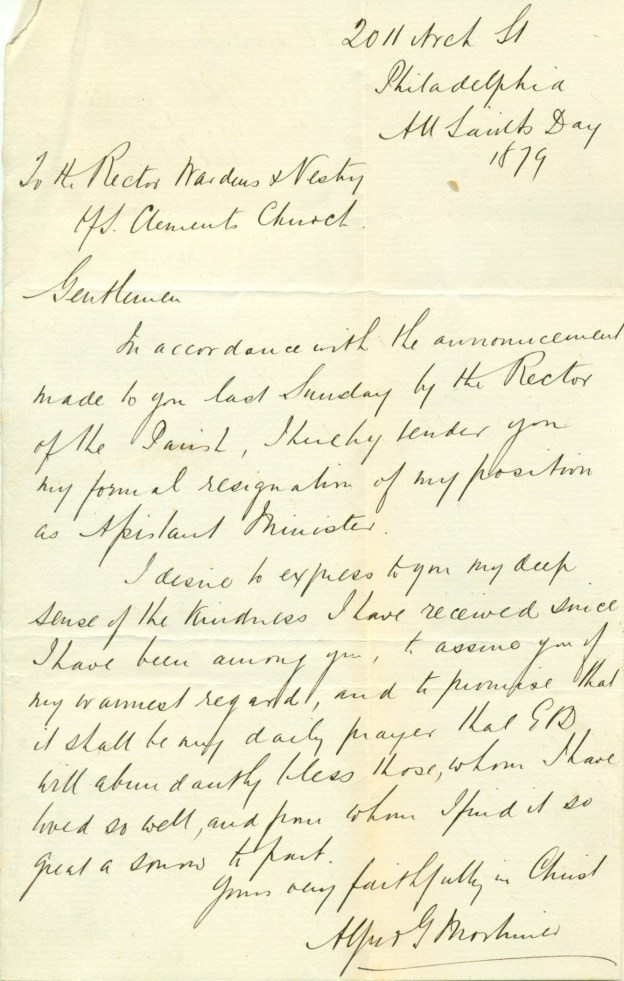 2011 Arch St
Philadelphia
All Saints Day
1879
To the Rector Wardens & Vestry
of S. Clements Church.
Gentlemen
In accordance with the announcement
made to you last Sunday by the Rector
of the Parish, I hereby tender you
my formal resignation of my position
as Assistant Minister.
I desire to express to you my deep
sense of the kindness I have received since
I have been among you, to assure you of
my warmest regard, and to promise that
it shall be my daily prayer that GOD
will abundantly bless those, whom I have
loved so well, and from whom I find it so
great a sorrow to part.
Yours very faithfully in Christ
Alfred G Mortimer